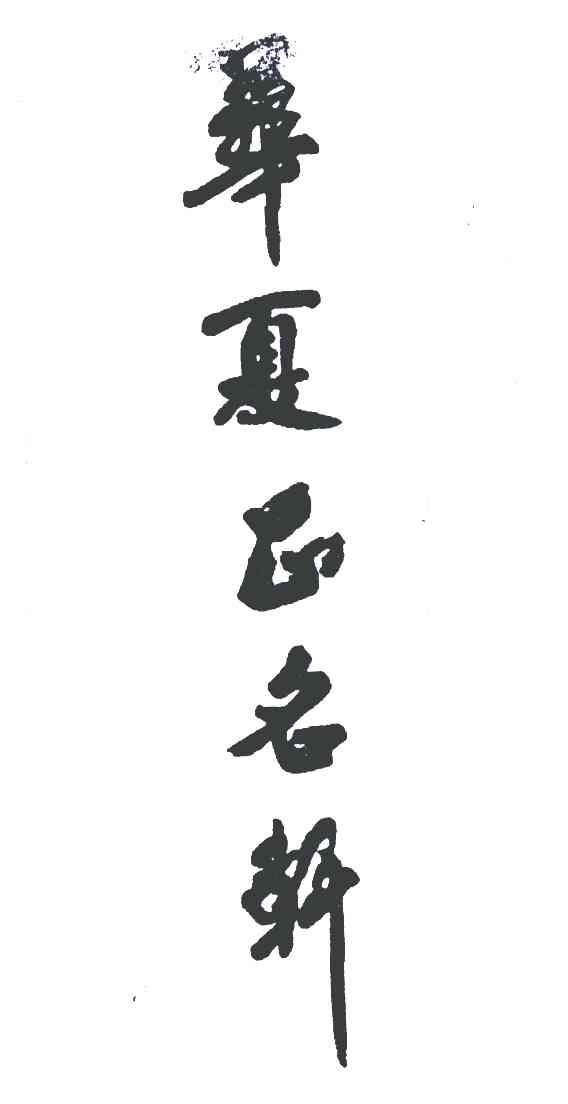 華夏正名軒